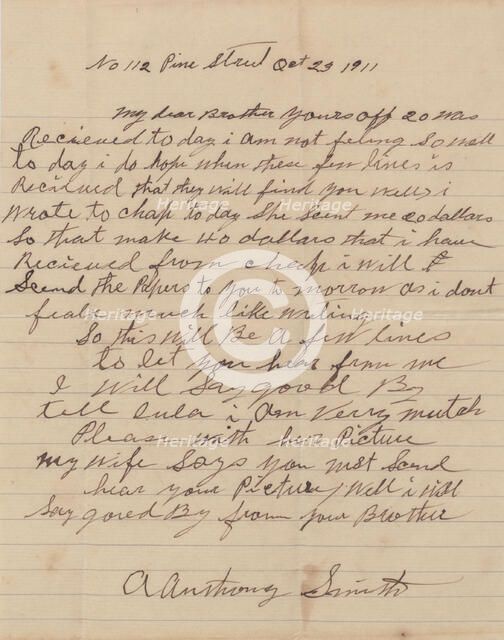 No 112 Pine Street Oct 23 1911
My dear Brother yours off 20 was
Recieved to day i am not feling So well
to day i do hope when these few lines is
Recieved that they will find you well i
wrote to chap to day She Sent me 20 dollars
So that make 40 dollars that i have
Recieved from cheap i will
Seend the Papers to you to morrow as i dont
feal much like writing
So this will Be a few lines
to let you hear from me
I will Say good By
tell lula i am verry mutch
Please with her Picture
my wife Says you must Send
hear your Picture Well i will
Say gored By from your Brother
A Anthony Smith
Heritage Heritage
Heritage Heritage
Heritage Heritage